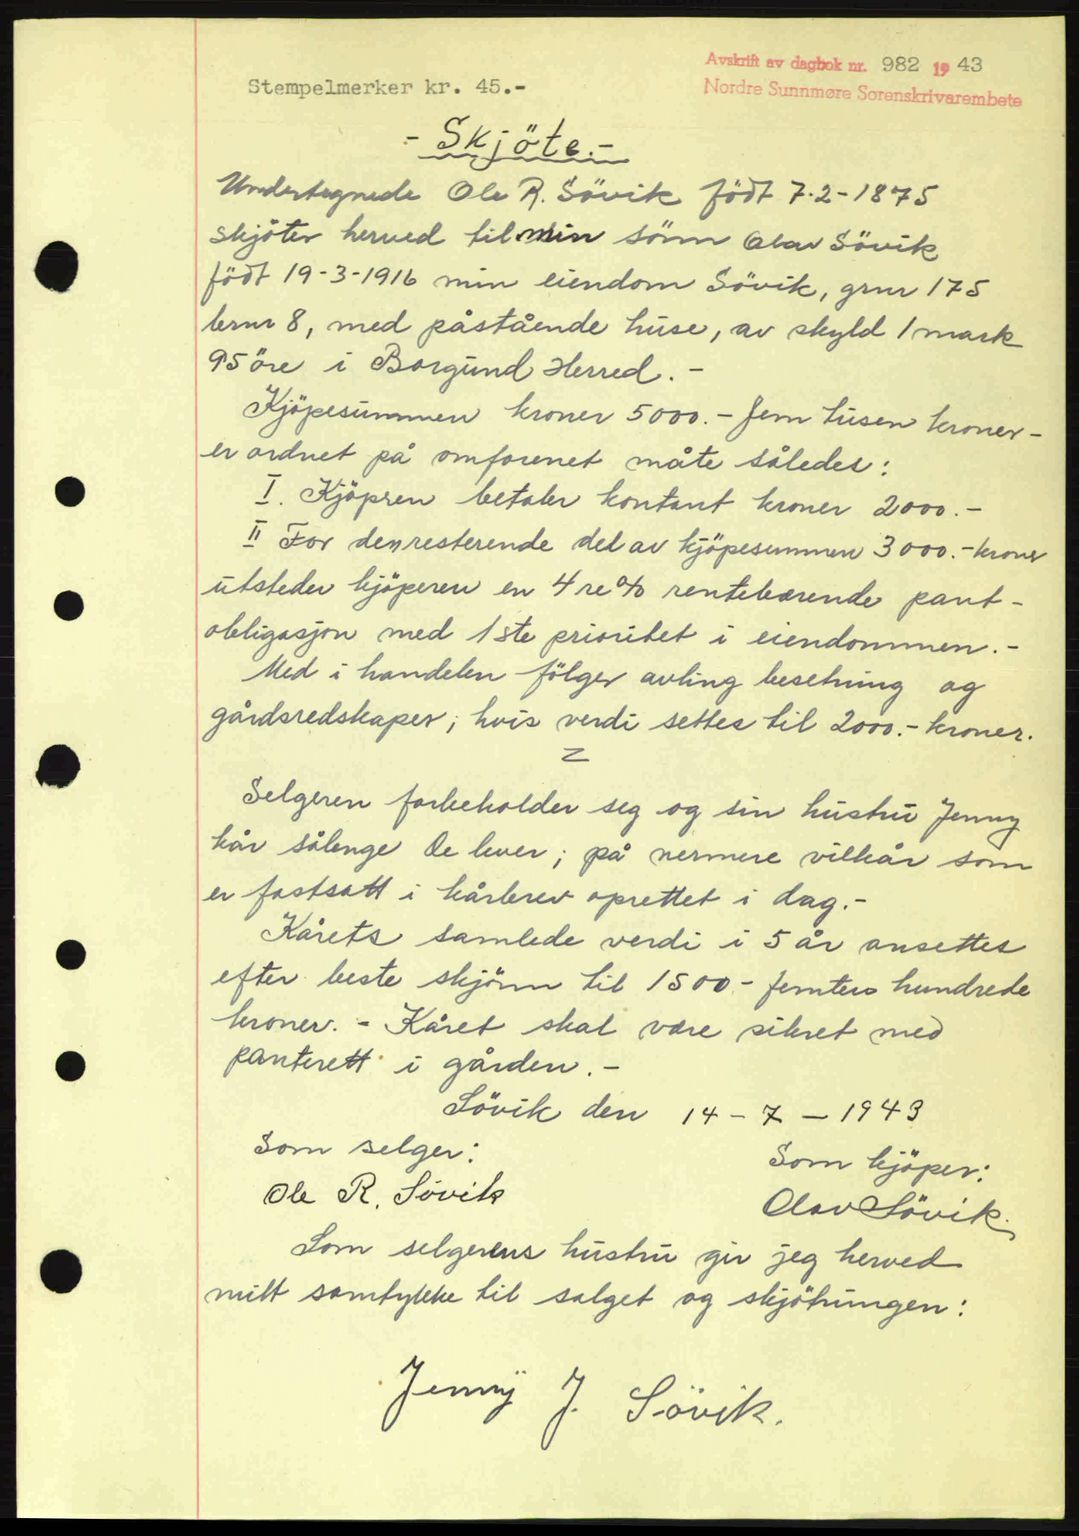 Avskrift av dagbok nr. 982 19 43
Stempelmerker kr. 45.-
Nordre Sunnmøre Sorenskrivarembete
- Skjöte.-
Undertegnede Ole R. Sövik födt 7.2-1875
skjöter herved til min sönn Olav Sövik
födt 19-3-1916 min eiendom Sövik, grnr 175
brnr 8, med påstående huse, av skyld 1 mark
95 öre i Borgund Herred. -
Kjöpesummen kroner 5000.- fem tusen kroner -
er ordnet på omforenet måte således:
I. Kjöpren betaler kontant kroner 2000.-
II For den resterende del av kjöpesummen 3000.- kroner
utsteder kjöperen en 4 re % rentebærende pant-
obligasjon med 1ste prioritet i eiendommen.-
Med i handelen fölger avling besetning og
gårdsredskaper; hvis verdi settes til 2000.- kroner.
Selgeren forbeholder seg og sin hustru Jenny
kår sålenge De lever; på nermere vilkår som
er fastsatt i kårbrev oprettet i dag.-
Kårets samlede verdi i 5 år ansettes
efter beste skjönn til 1500- femten hundrede
kroner. - Kåret skal være sikret med
panterett i gården.-
Sövik den 14-7-1943
Som selger:
Som kjöper:
Ole R. Sövik
Olav Sövik.
Som selgerens hustru gir jeg herved
mitt samtykke til salget og skjötningen:
Jenny J. Sövik.